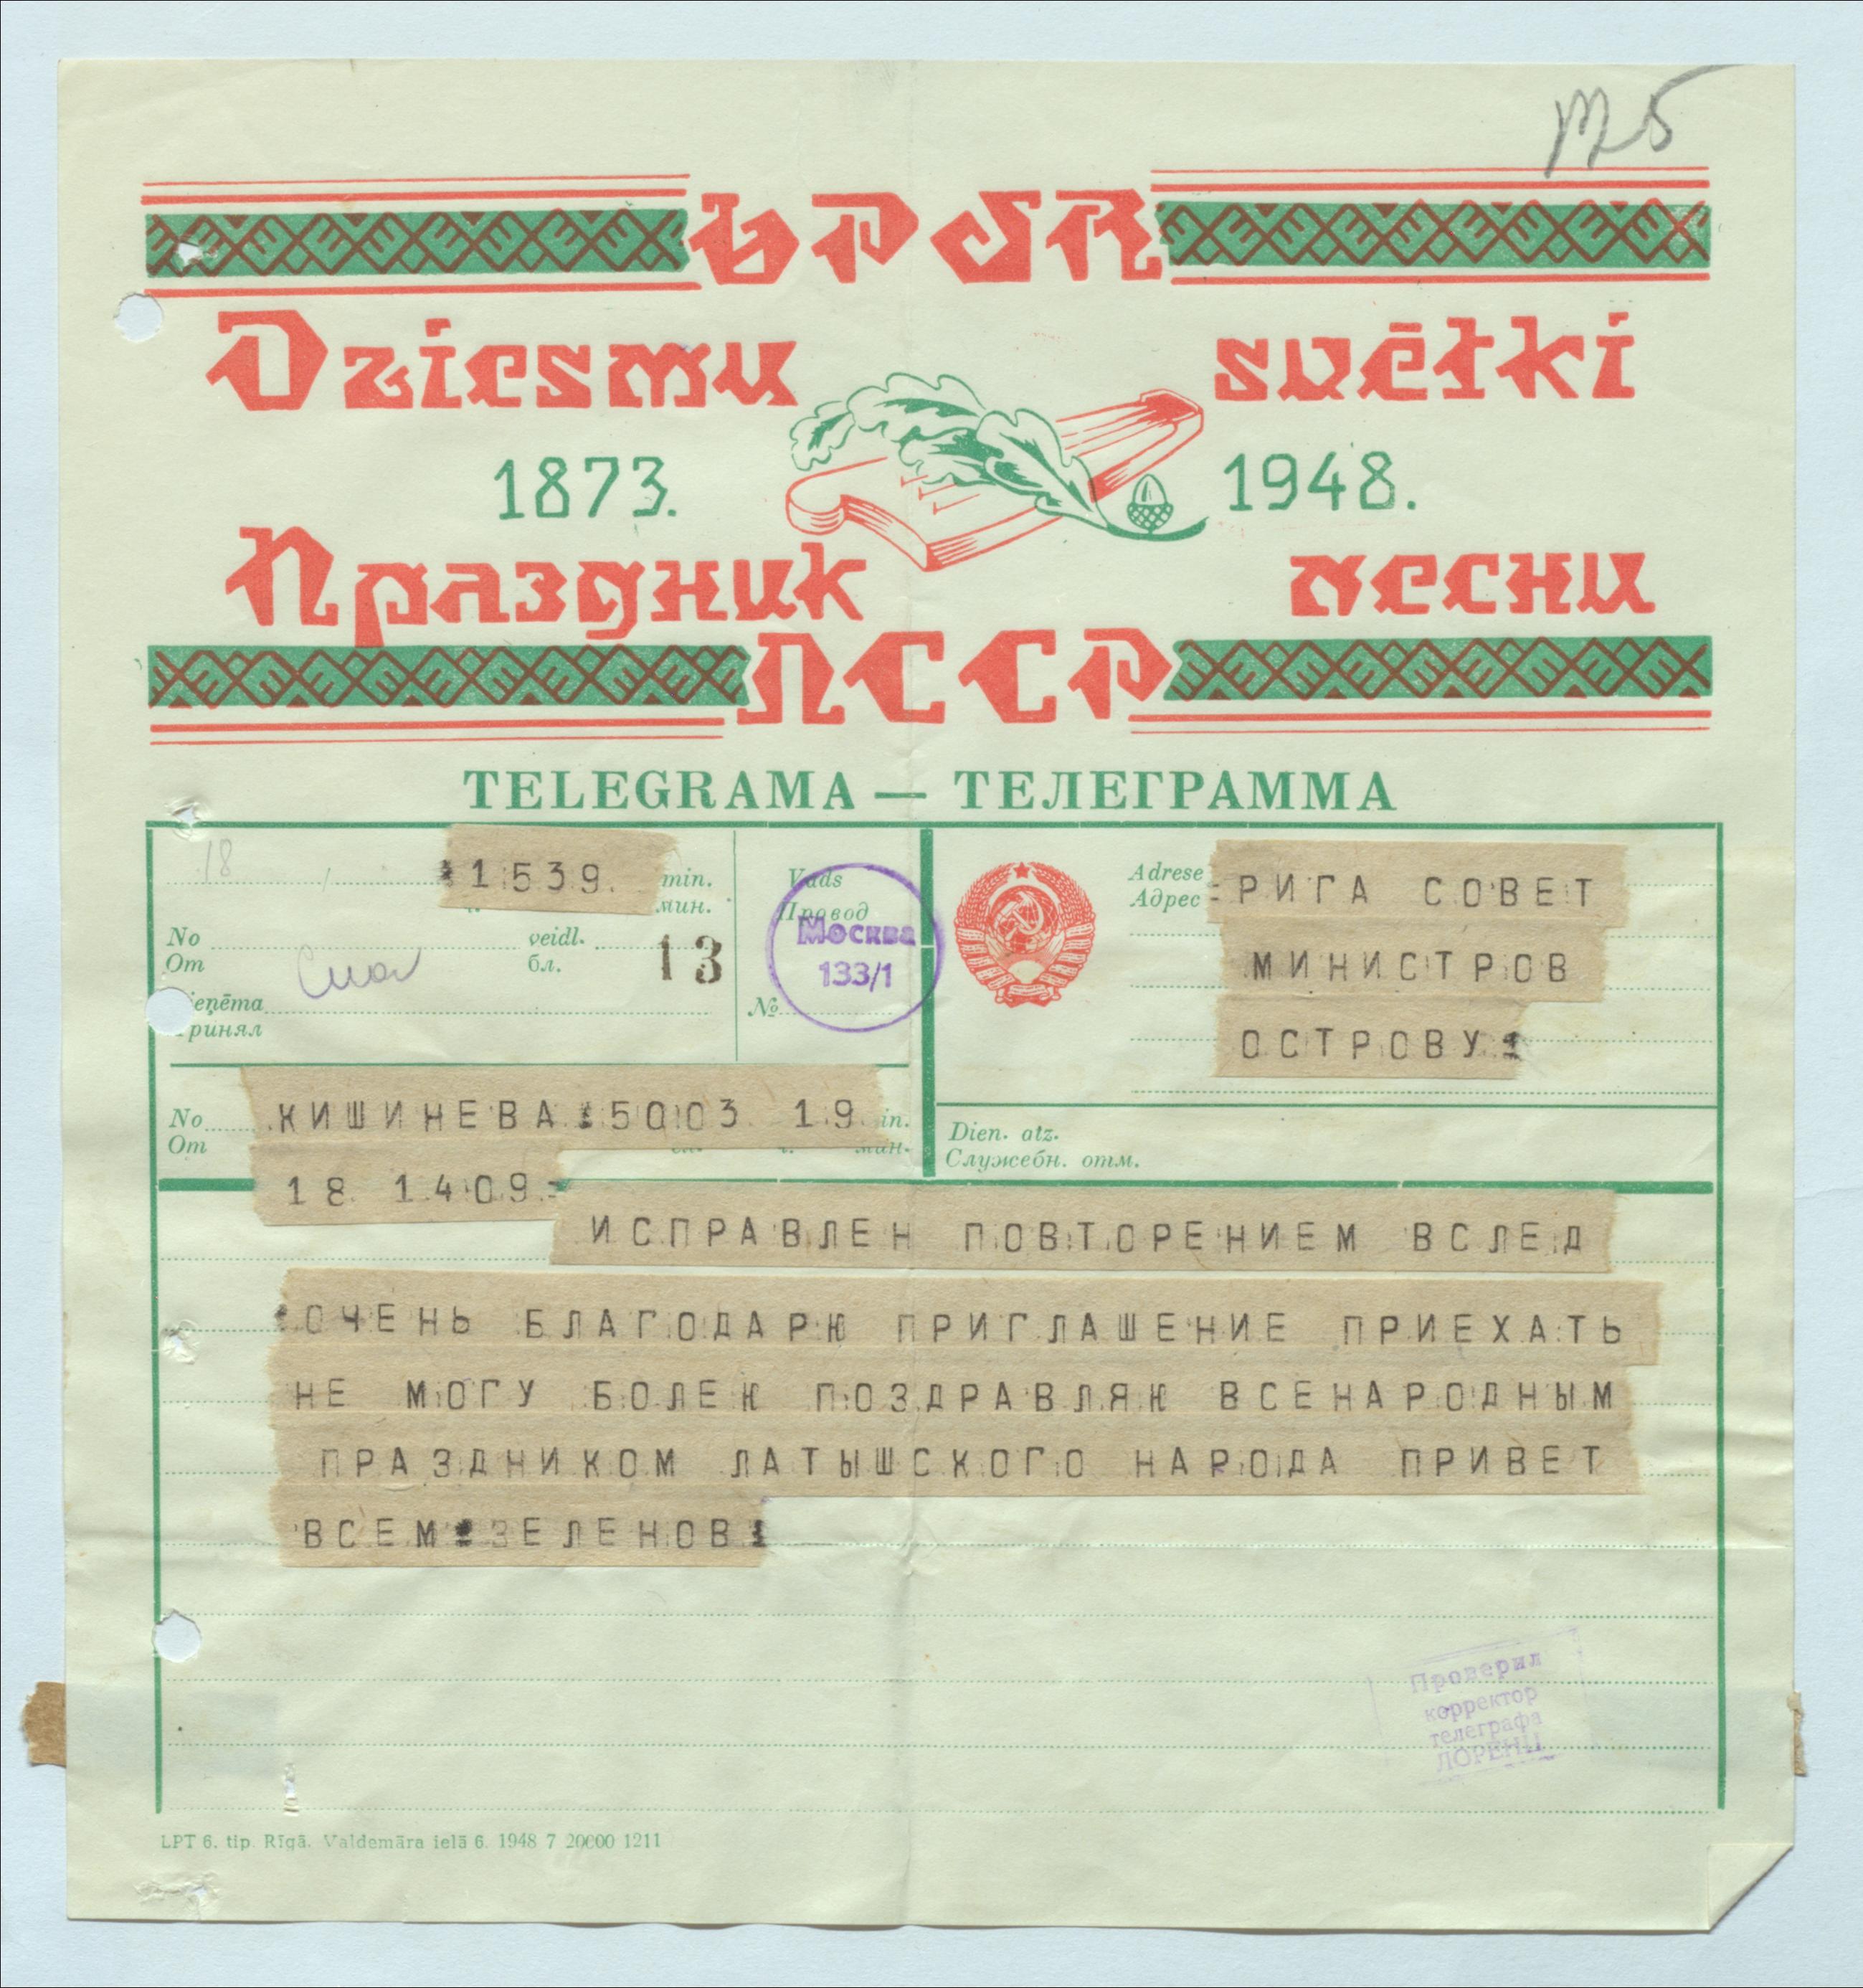 LPSR
Dziesmu svētki
1873. 1948.
Праздник песни
ЛССР
TELEGRAMA — ТЕЛЕГРАММА
18 1539. min.
мин.
Vads
Провод
Москва
133/1
№
Adrese
Адрес
РИГА СОВЕТ
МИНИСТРОВ
ОСТРОВУ
No veidl. 13
От бл.
ieņēma
ринял
No КИШИНЕВА 5003 19 in.
От мин.
18 1409=
Dien. atz.
Служебн. отм.
ИСПРАВЛЕН ПОВТОРЕНИЕМ ВСЛЕД
ОЧЕНЬ БЛАГОДАРЮ ПРИГЛАШЕНИЕ ПРИЕХАТЬ
НЕ МОГУ БОЛЕЮ ПОЗДРАВЛЯЮ ВСЕНАРОДНЫМ
ПРАЗДНИКОМ ЛАТЫШСКОГО НАРОДА ПРИВЕТ
ВСЕМ ЗЕЛЕНОВ
Проверил
корректор
телеграфа
ЛОРЕНЦ
LPT 6. tip. Rīgā. Valdemāra ielā 6. 1948 7 20000 1211